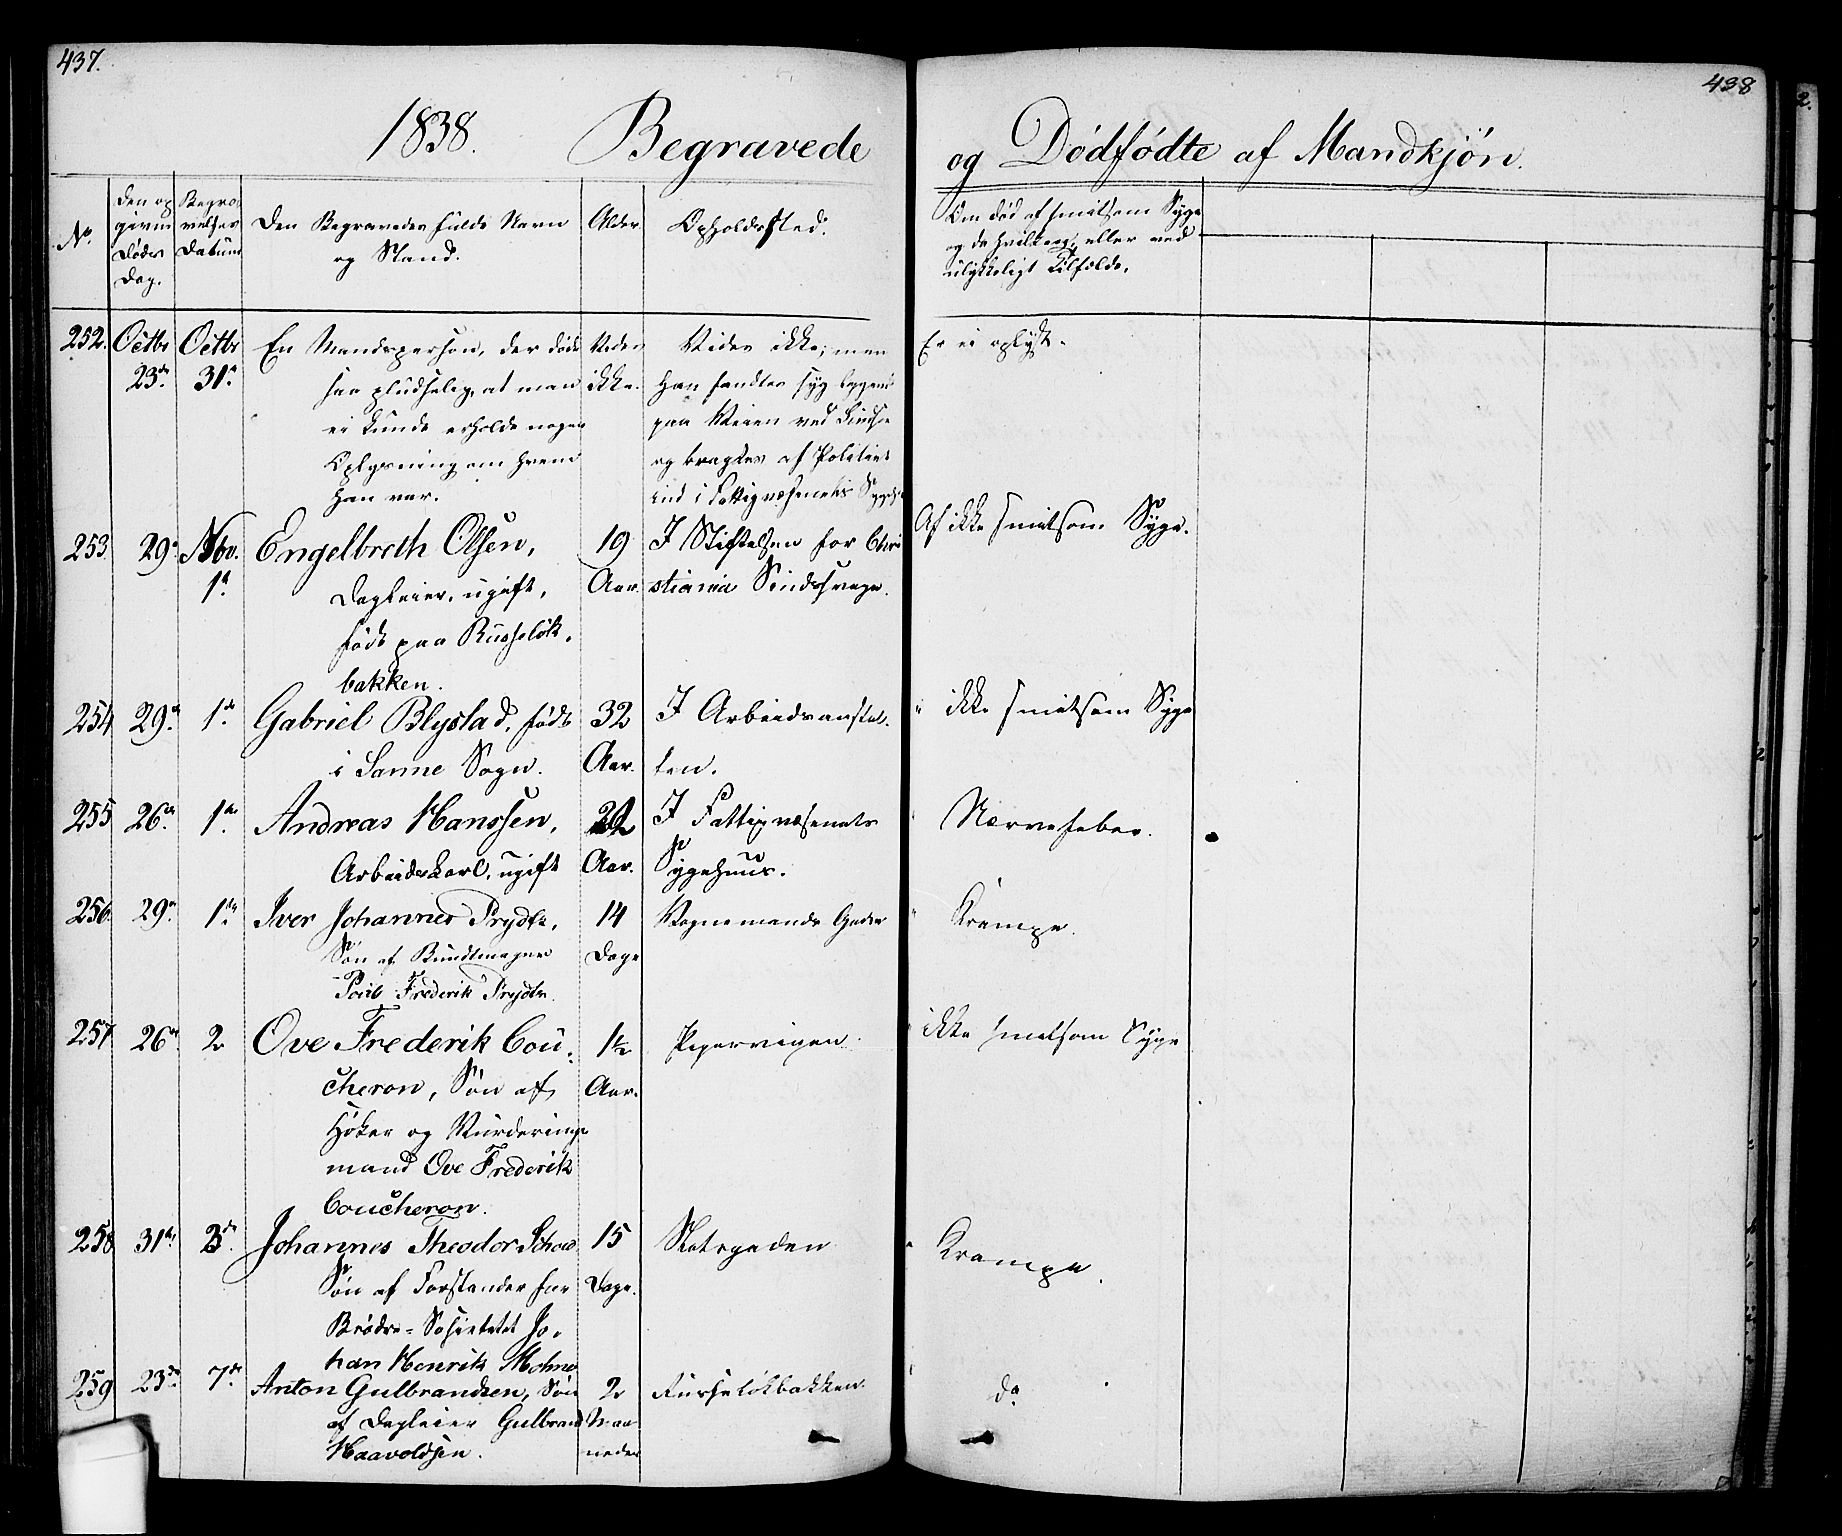 437.
438
1838. Begravede og Dødfødte af Mandkjøn.
No.
Den op
givne
Døds
Dag.
Begra
velses
Datum
Den Begravedes fulde Navn
og Stand.
Alder
Opholdssted.
Om død af smitsom Syge
og da hvilken, eller ved
ulykkeligt Tilfælde.
252. Octbr 23de Octbr 31te
En Mandsperson, der døde
saa pludselig, at man
ei kunde erholde nogen
Oplysning om hvem
han var.
Vides
ikke.
Vides ikke; men
han fandtes syg liggende
paa Veien ved
og bragtes af Politiet
ind i Fattigvæsenets Sygeh
Er ei oplyst.
253. 29de Nov. 1te
Engelbreth Olsen,
Dagleier, ugift,
født paa Russeløk-
bakken.
19
Aar.
I Stiftelsen for Chri
stiania Sindssvage.
Af ikke smitsom Syge.
254 29de 1te
Gabriel Blystad, født
i Sanne Sogn.
32
Aar.
I Arbeidsanstal-
ten.
" ikke smitsom Syge
255 26de 1te
Andreas Hanssen,
Arbeidskarl, ugift
Aar.
I Fattigvæsenets
Sygehuus.
" Nervefeber.
256. 29de 1te
Iver Johannes Prydtz,
Søn af Bundtmager
Poul Frederik Prydtz.
14
Dage
Vognmands Gaden
" Krampe.
257 26de 2
Ove Frederik Cou-
cheron, Søn af
Høker og Vurderings
mand Ove Frederik
Coucheron.
1½
Aar.
Pipervigen.
" ikke smitsom Syge
258 31te 3de
Johannes Theodor
Søn af Forstander for
Brødre-Societetet Jo-
han Henrik
15
Dage.
Slotsgaden
" Krampe.
259 23de 7de
Anton Gulbrandsen, Søn
af Dagleier Gulbrand
Haavoldsen.
2
Maa
neder
Russeløkbakken.
" do